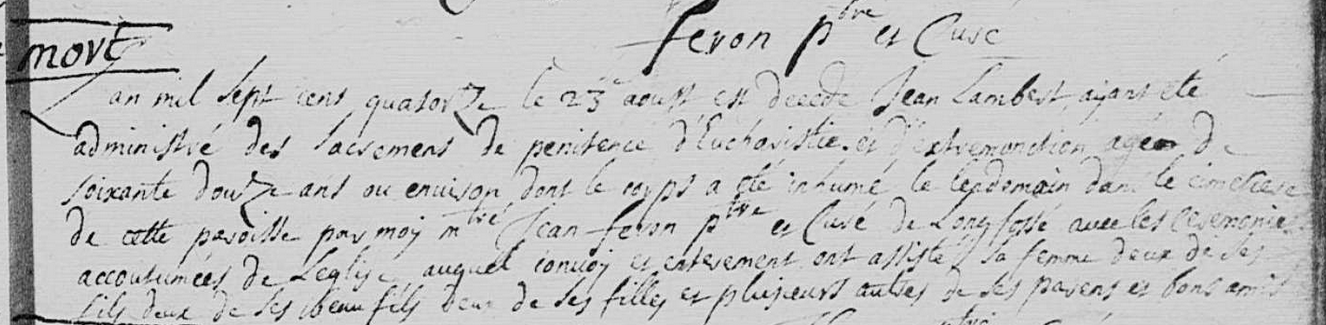 feron pbre et Curé
mort
Lan mil sept cens quatorze le 23e aoust est decedé Jean Lambert ayant été
administré des sacremens de penitence d'Eucharistie et d'extremonction agé de
soixante douze ans ou environ dont le corps a été inhumé le lendemain dans le cimetiere
de cette paroisse par moy mtre Jean feron pbre et Curé de Longfossé avec les ceremonies
accoutumées de Leglise, auquel convoy et enterement ont assisté sa femme deux de ses
fils deux de ses beau fils deux de ses filles et plusieurs autres de ses parens et bons amis